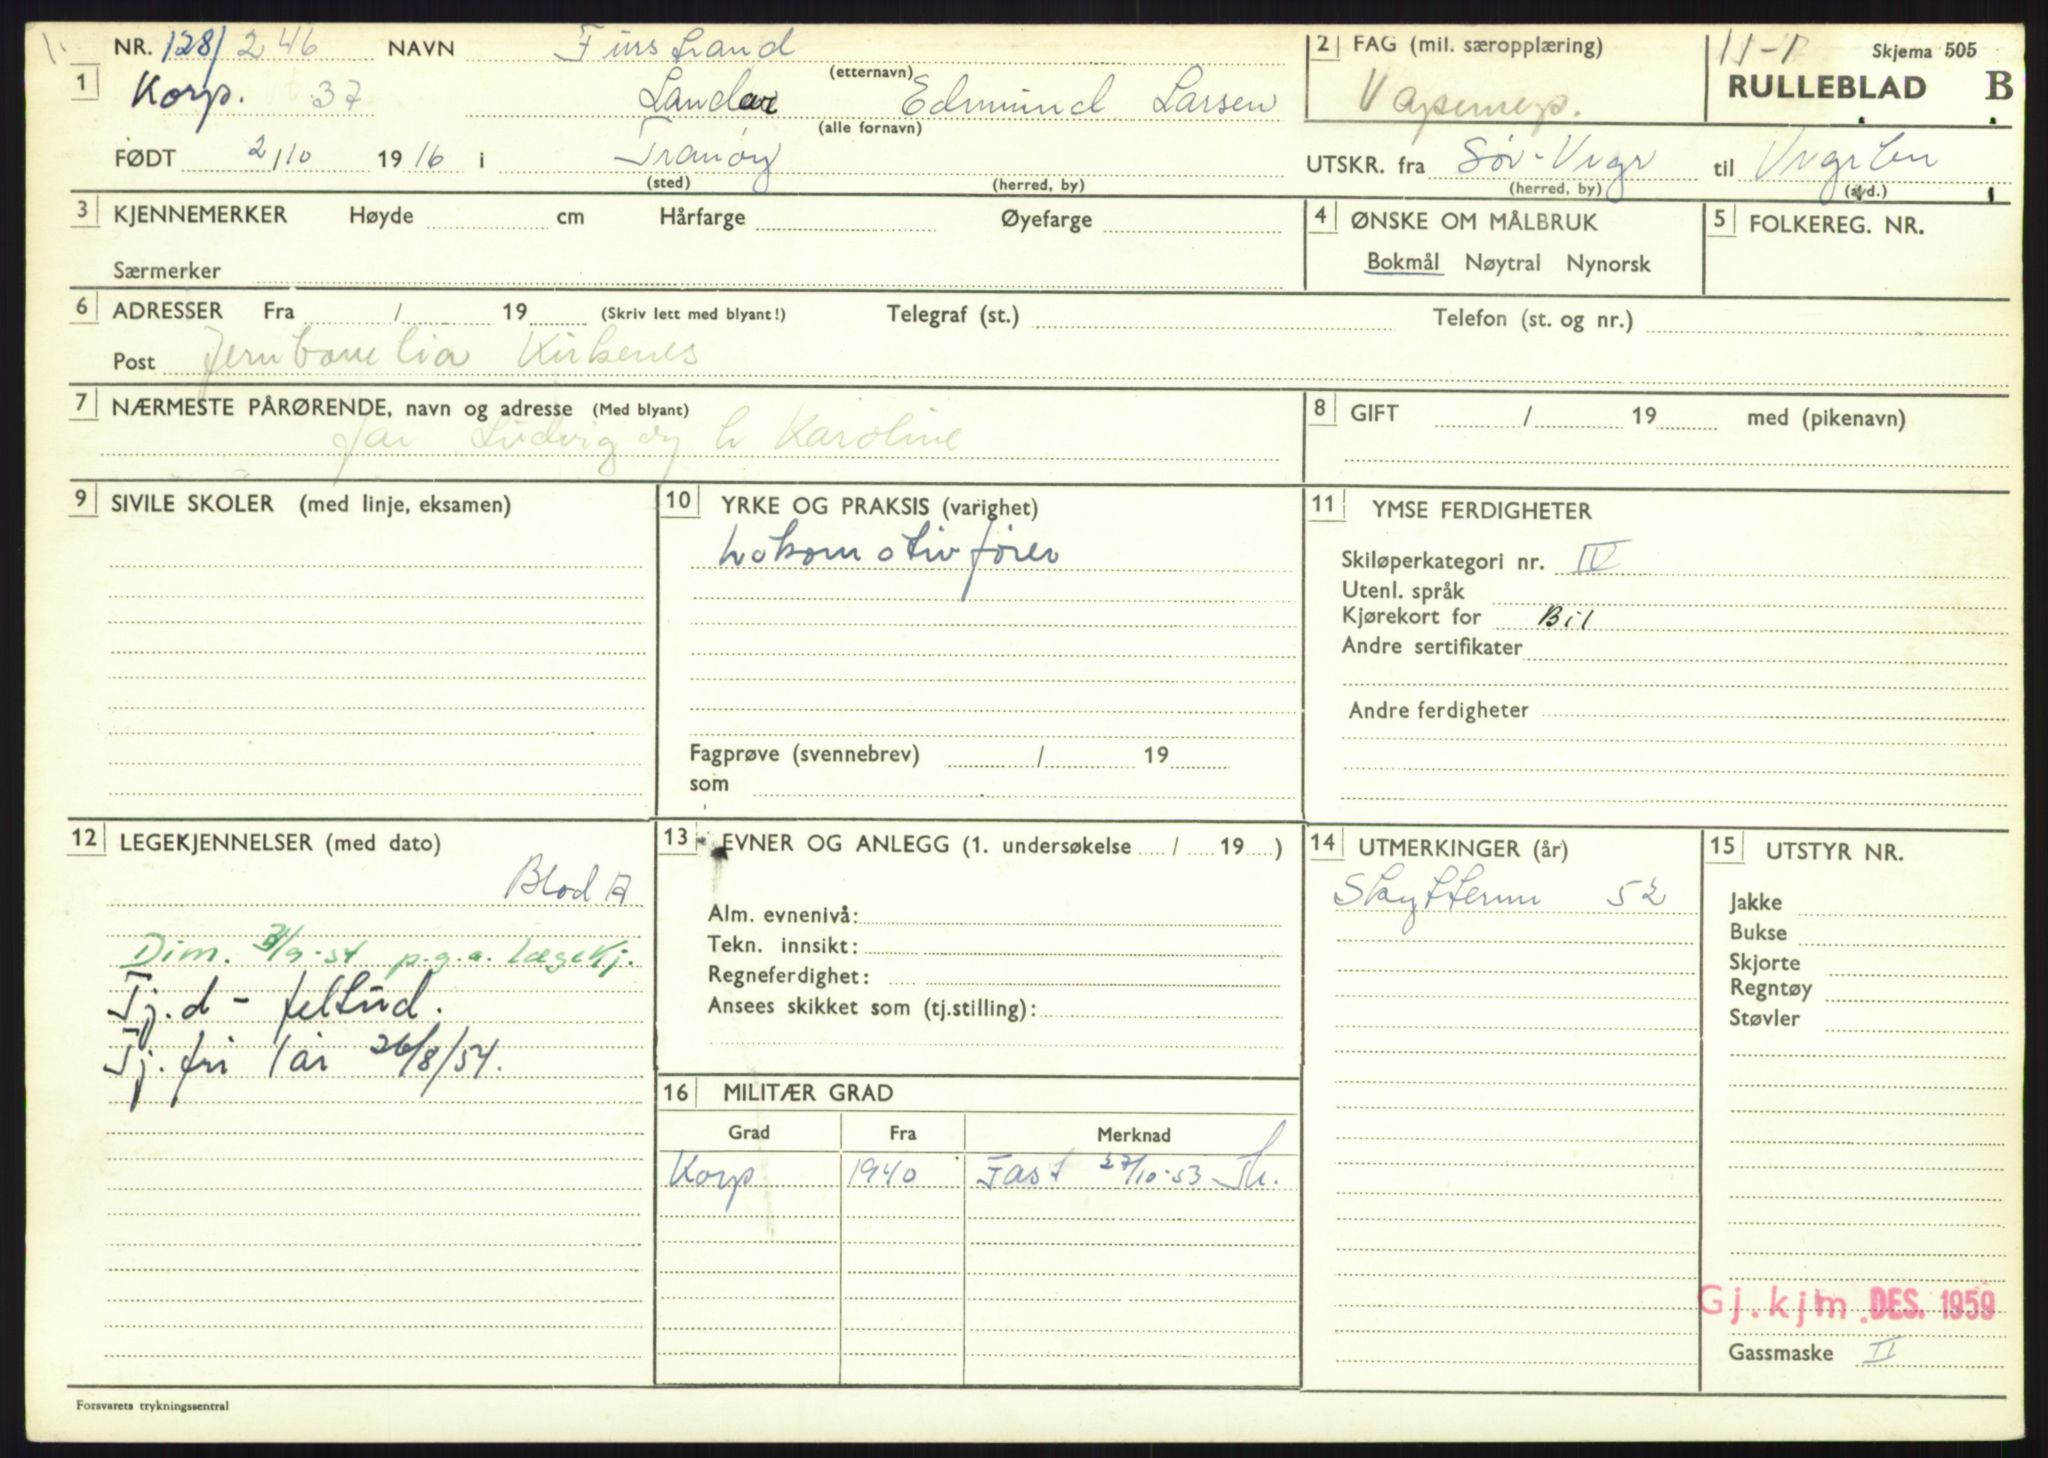 NR. 128/246 NAVN Furstrand 2 FAG (mil. særopplæring) 11-A Skjema 505
(etternavn)
1 Korp. 37 Landar Edmund Larsen Vapenrep. RULLEBLAD B
(alle fornavn)
FØDT 2/10 1916 i Tranøy UTSKR. fra Sør-Vrgr til Vrgrbn
(sted) (herred, by) (herred, by) (avd.)
3 KJENNEMERKER Høyde cm Hårfarge Øyefarge 4 ØNSKE OM MÅLBRUK 5 FOLKEREG. NR.
Særmerker Bokmål Nøytral Nynorsk
6 ADRESSER Fra / 19 (Skriv lett med blyant!) Telegraf (st.) Telefon (st. og nr.)
Post Jernbanelia Kirkenes
7 NÆRMESTE PÅRØRENDE, navn og adresse (Med blyant) 8 GIFT / 19 med (pikenavn)
Far Ludvig og h Karoline
9 SIVILE SKOLER (med linje, eksamen) 10 YRKE OG PRAKSIS (varighet) 11 YMSE FERDIGHETER
Lokomotivfører
Skiløperkategori nr. IV
Utenl. språk
Kjørekort for Bil
Andre sertifikater
Andre ferdigheter
Fagprøve (svennebrev) / 19
som
12 LEGEKJENNELSER (med dato) 13 EVNER OG ANLEGG (1. undersøkelse / 19 ) 14 UTMERKINGER (år) 15 UTSTYR NR.
Blod A Skytterm 52
Jakke
Alm. evnenivå:
Bukse
Dim. 3/9-54 p.g.a. Lægekj. Tekn. innsikt:
Skjorte
Regneferdighet:
Regntøy
Tj.d - feltud. Ansees skikket som (tj.stilling):
Støvler
Tj. fri 1 år 26/8/54.
16 MILITÆR GRAD
Grad Fra Merknad
Korp 1940 Fast 27/10-53
Gj.kjm. DES. 1959
Gassmaske II
Forsvarets trykningssentral